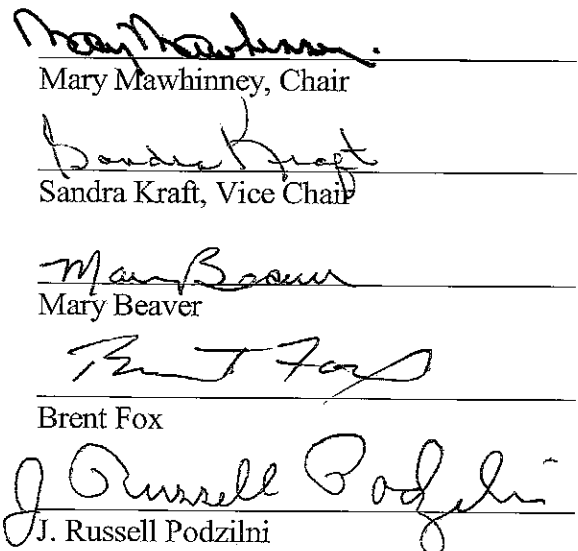 Mary Mawhinney.
Mary Mawhinney, Chair
Sandra Kraft
Sandra Kraft, Vice Chair
Mary Beaver
Mary Beaver
Brent Fox
Brent Fox
J Russell Podzilni
J. Russell Podzilni